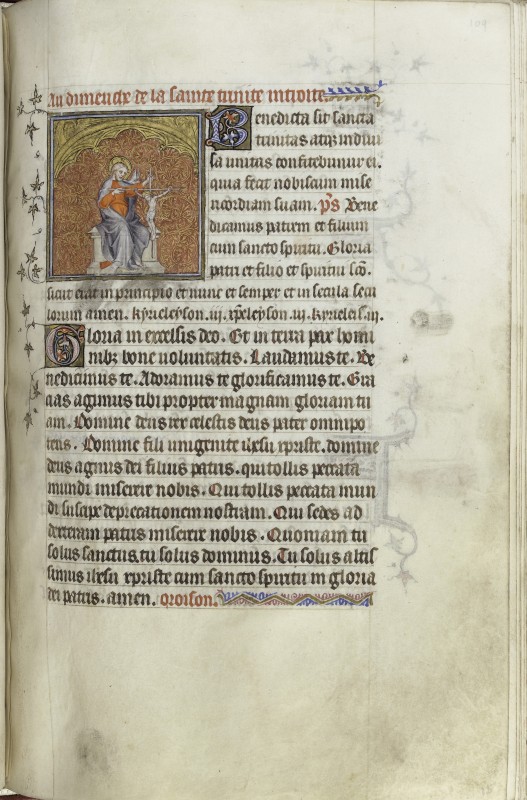 Au dimenche de la sainte trinite introite.
Benedicta sit sancta
trinitas atq; indiui
sa unitas confitebimur ei.
quia fecit nobiscum mise
ricordiam suam. ps Bene
dicamus patrem et filium
cum sancto spiritu. Gloria
patri et filio et spiritui sco.
sicut erat in principio et nunc et semper et in secula secu
lorum amen. kyrieleyson .iii. xpeleyson .iii. kyrieleis .iii.
Gloria in excelsis deo. Et in terra pax homi
nibz bone uoluntatis. Laudamus te. Be
nedicimus te. Adoramus te glorificamus te. Gra
cias agimus tibi propter magnam gloriam tu
am. Domine deus rex celestis deus pater omnipo
tens. Domine fili unigenite ihesu xpriste. domine
deus agnus dei filius patris. qui tollis peccata
mundi miserere nobis. Qui tollis peccata mun
di suscipe deprecationem nostram. Qui sedes ad
dexteram patris miserere nobis. Quoniam tu
solus sanctus. tu solus dominus. Tu solus altis
simus ihesu xpriste cum sancto spiritu in gloria
dei patris. amen. Oroison.